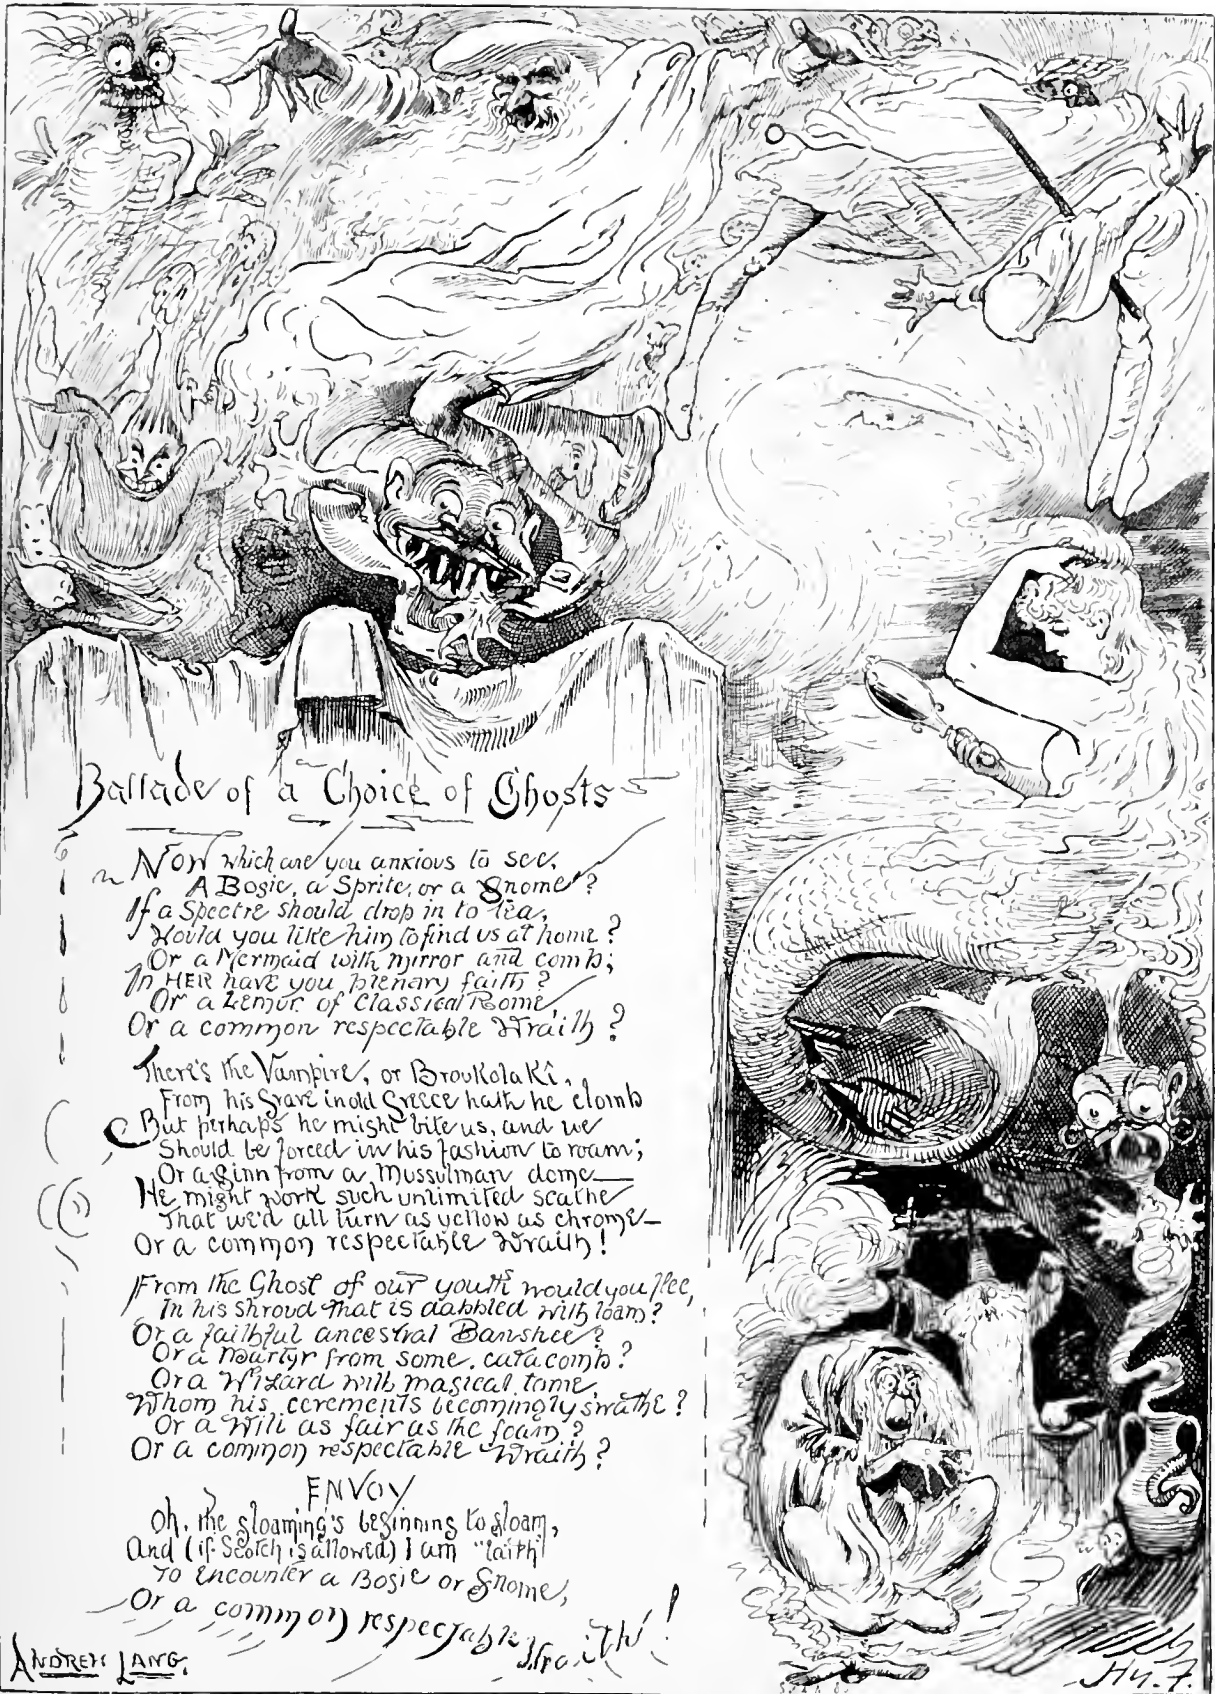 Ballade of a Choice of Ghosts
Now which are you anxious to see,
A Bogie, a Sprite, or a Gnome?
If a Spectre should drop in to tea,
Would you like him to find us at home?
Or a Mermaid with mirror and comb;
In HER have you plenary faith?
Or a Lemur of Classical Rome,
Or a common respectable Wraith?
There's the Vampire, or Broukolakî,
From his Grave in old Greece hath he clomb
But perhaps he might bite us, and we
Should be forced in his fashion to roam;
Or a Ginn from a Mussulman dome—
He might work such unlimited scathe
That we'd all turn as yellow as chrome—
Or a common respectable Wraith!
From the Ghost of our youth would you flee,
In his shroud that is dabbled with loam?
Or a faithful ancestral Banshee?
Or a Martyr from some catacomb?
Or a Wizard with magical tome,
Whom his cerements becomingly swathe?
Or a Wili as fair as the foam?
Or a common respectable Wraith?
ENVOY
Oh, the gloaming's beginning to gloam,
And (if Scotch is allowed) I am "laith"
To encounter a Bogie or Gnome,
Or a common respectable Wraith!
ANDREW LANG.
Hy. F.